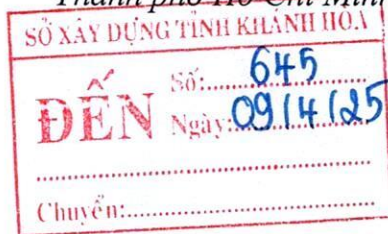 Thành phố Hồ Chí Minh
SỞ XÂY DỰNG TỈNH KHÁNH HOÀ
ĐẾN
Số:.........645
Ngày:09/4/25
Chuyển: